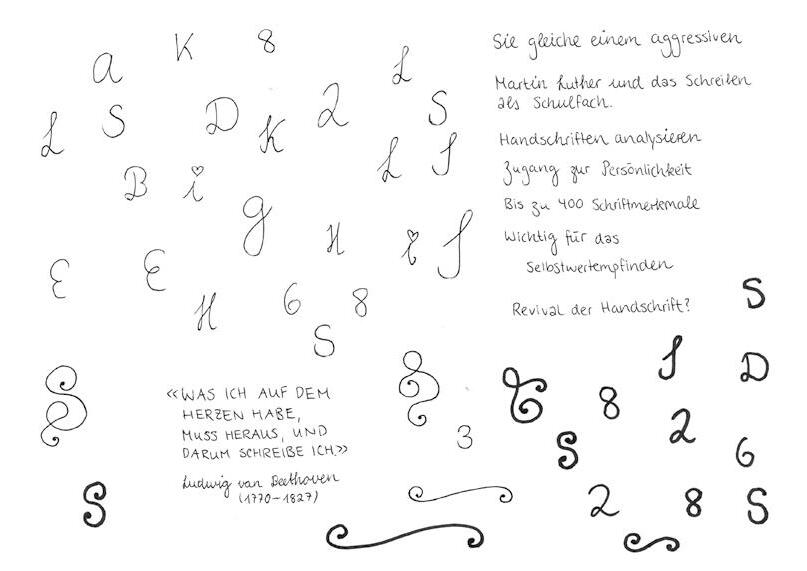 K 8
a L
L S D K 2 S
B i L S
g H i S
E E
H 6 8
S
Sie gleiche einem aggressiven
Martin Luther und das Schreiben
als Schulfach.
Handschriften analysieren
Zugang zur Persönlichkeit
Bis zu 400 Schriftmerkmale
Wichtig für das
Selbstwertempfinden
Revival der Handschrift?
S
S
S
«WAS ICH AUF DEM
HERZEN HABE,
MUSS HERAUS, UND
DARUM SCHREIBE ICH.»
Ludwig van Beethoven
(1770–1827)
S
3
S D
8 2
S 6
2 8 S